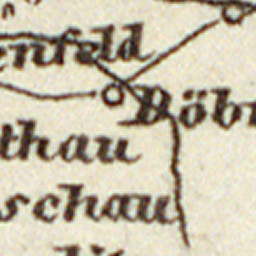 enfeld
Böbr
thau
schau